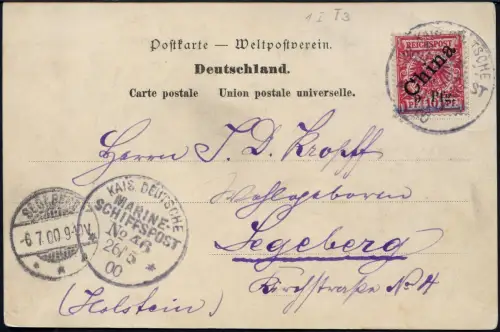 1 I T3
Postkarte — Weltpostverein.
Deutschland.
Carte postale Union postale universelle.
REICHSPOST
China
Herrn J. D. Kropff
Wohlgeboren
Segeberg
Kirchstraße No 4
(Holstein)
SEGEBERG
-6.7.00.9-10V.
KAIS. DEUTSCHE
MARINE-
SCHIFFSPOST
No 46
26/5
00